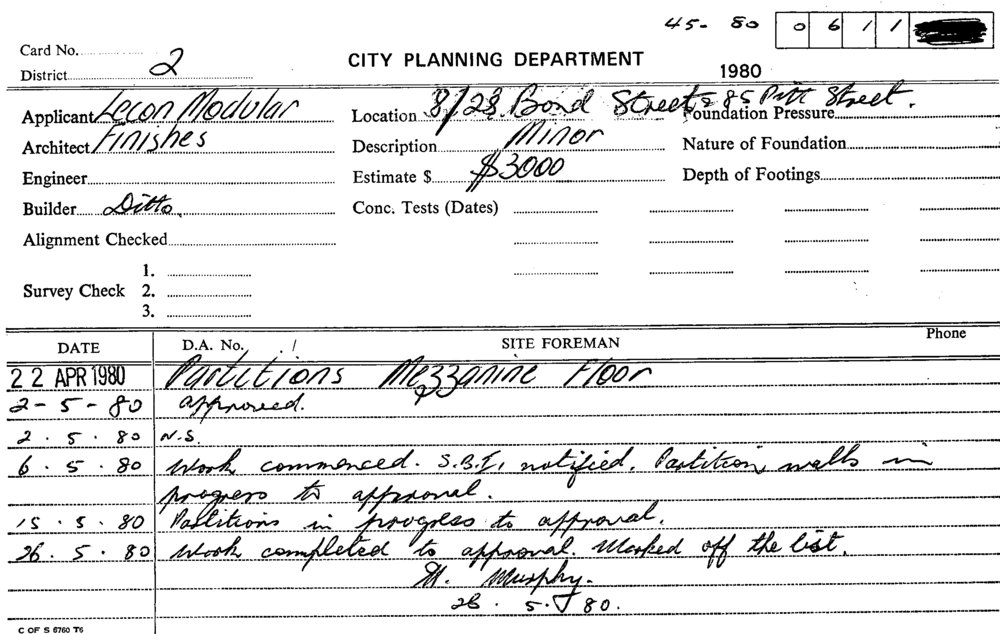 45- 80 0 6 1 1
Card No.
District 2
CITY PLANNING DEPARTMENT
1980
Applicant Lecon Modular
Location 8/28 Bond Street & 85 Pitt Street.
Foundation Pressure
Architect Finishes
Description Minor
Nature of Foundation
Engineer
Estimate $ $3000
Depth of Footings
Builder Ditto.
Conc. Tests (Dates)
Alignment Checked
1.
Survey Check 2.
3.
DATE D.A. No. / SITE FOREMAN Phone
22 APR 1980 Partitions Mezzanine Floor
2-5-80 approved.
2.5.80 N.S.
6.5.80 Work commenced. S.B.I. notified. Partition walls in
progress to approval.
15.5.80 Partitions in progress to approval.
26.5.80 Work completed to approval. Marked off the list.
M. Murphy.
26.5.80.
C OF S 6760 T6